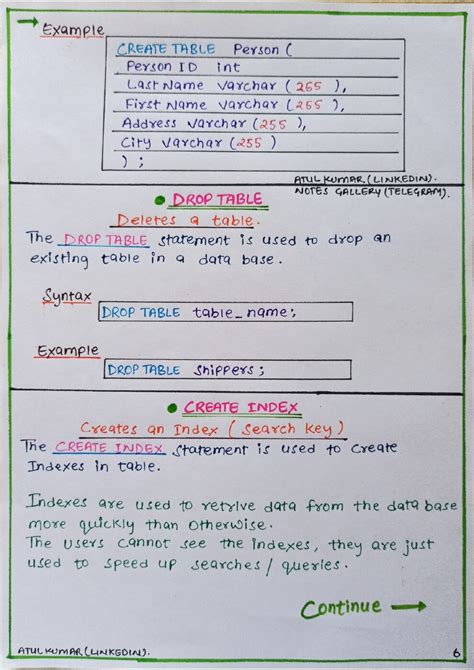 → Example
CREATE TABLE Person (
Person ID int
Last Name varchar (265),
First Name varchar (265),
Address varchar (255),
City varchar (255)
);
ATUL KUMAR (LINKEDIN).
NOTES GALLERY (TELEGRAM).
• DROP TABLE
Deletes a table.
The DROP TABLE statement is used to drop an
existing table in a data base.
Syntax
DROP TABLE table_name;
Example
DROP TABLE shippers;
• CREATE INDEX
Creates an Index (search key)
The CREATE INDEX statement is used to create
Indexes in table.
Indexes are used to retrive data from the data base
more quickly than otherwise.
The users cannot see the indexes, they are just
used to speed up searches / queries.
Continue →
ATUL KUMAR (LINKEDIN).
6